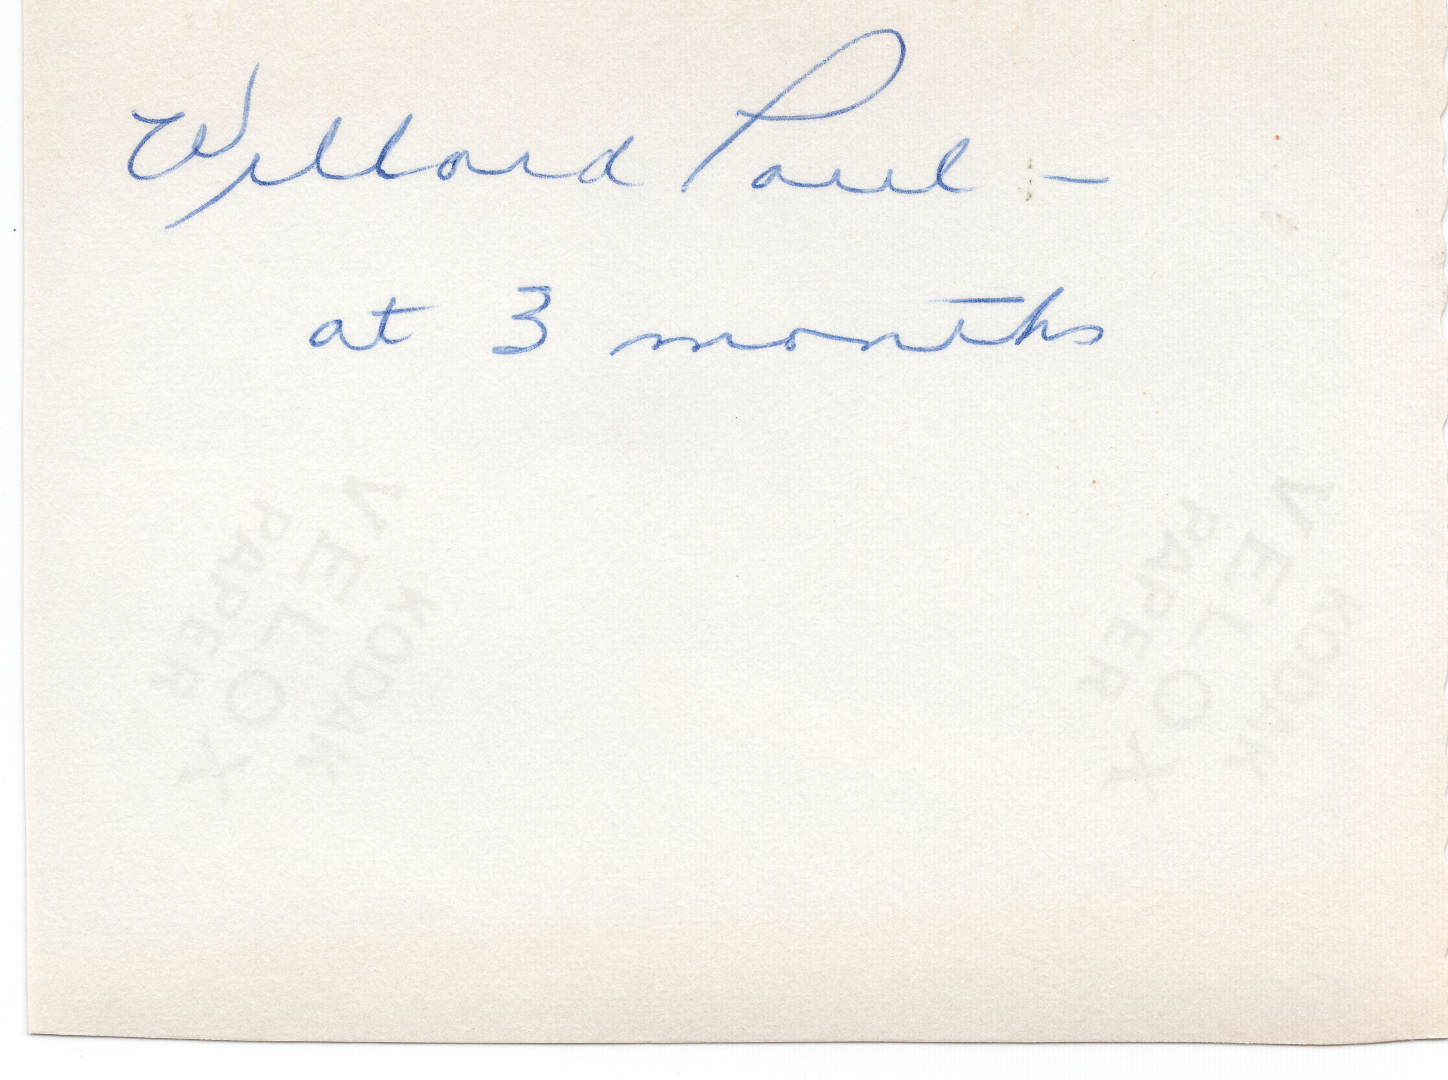 Willard Paul -
at 3 months
VELOX
KODAK
PAPER
VELOX
KODAK
PAPER